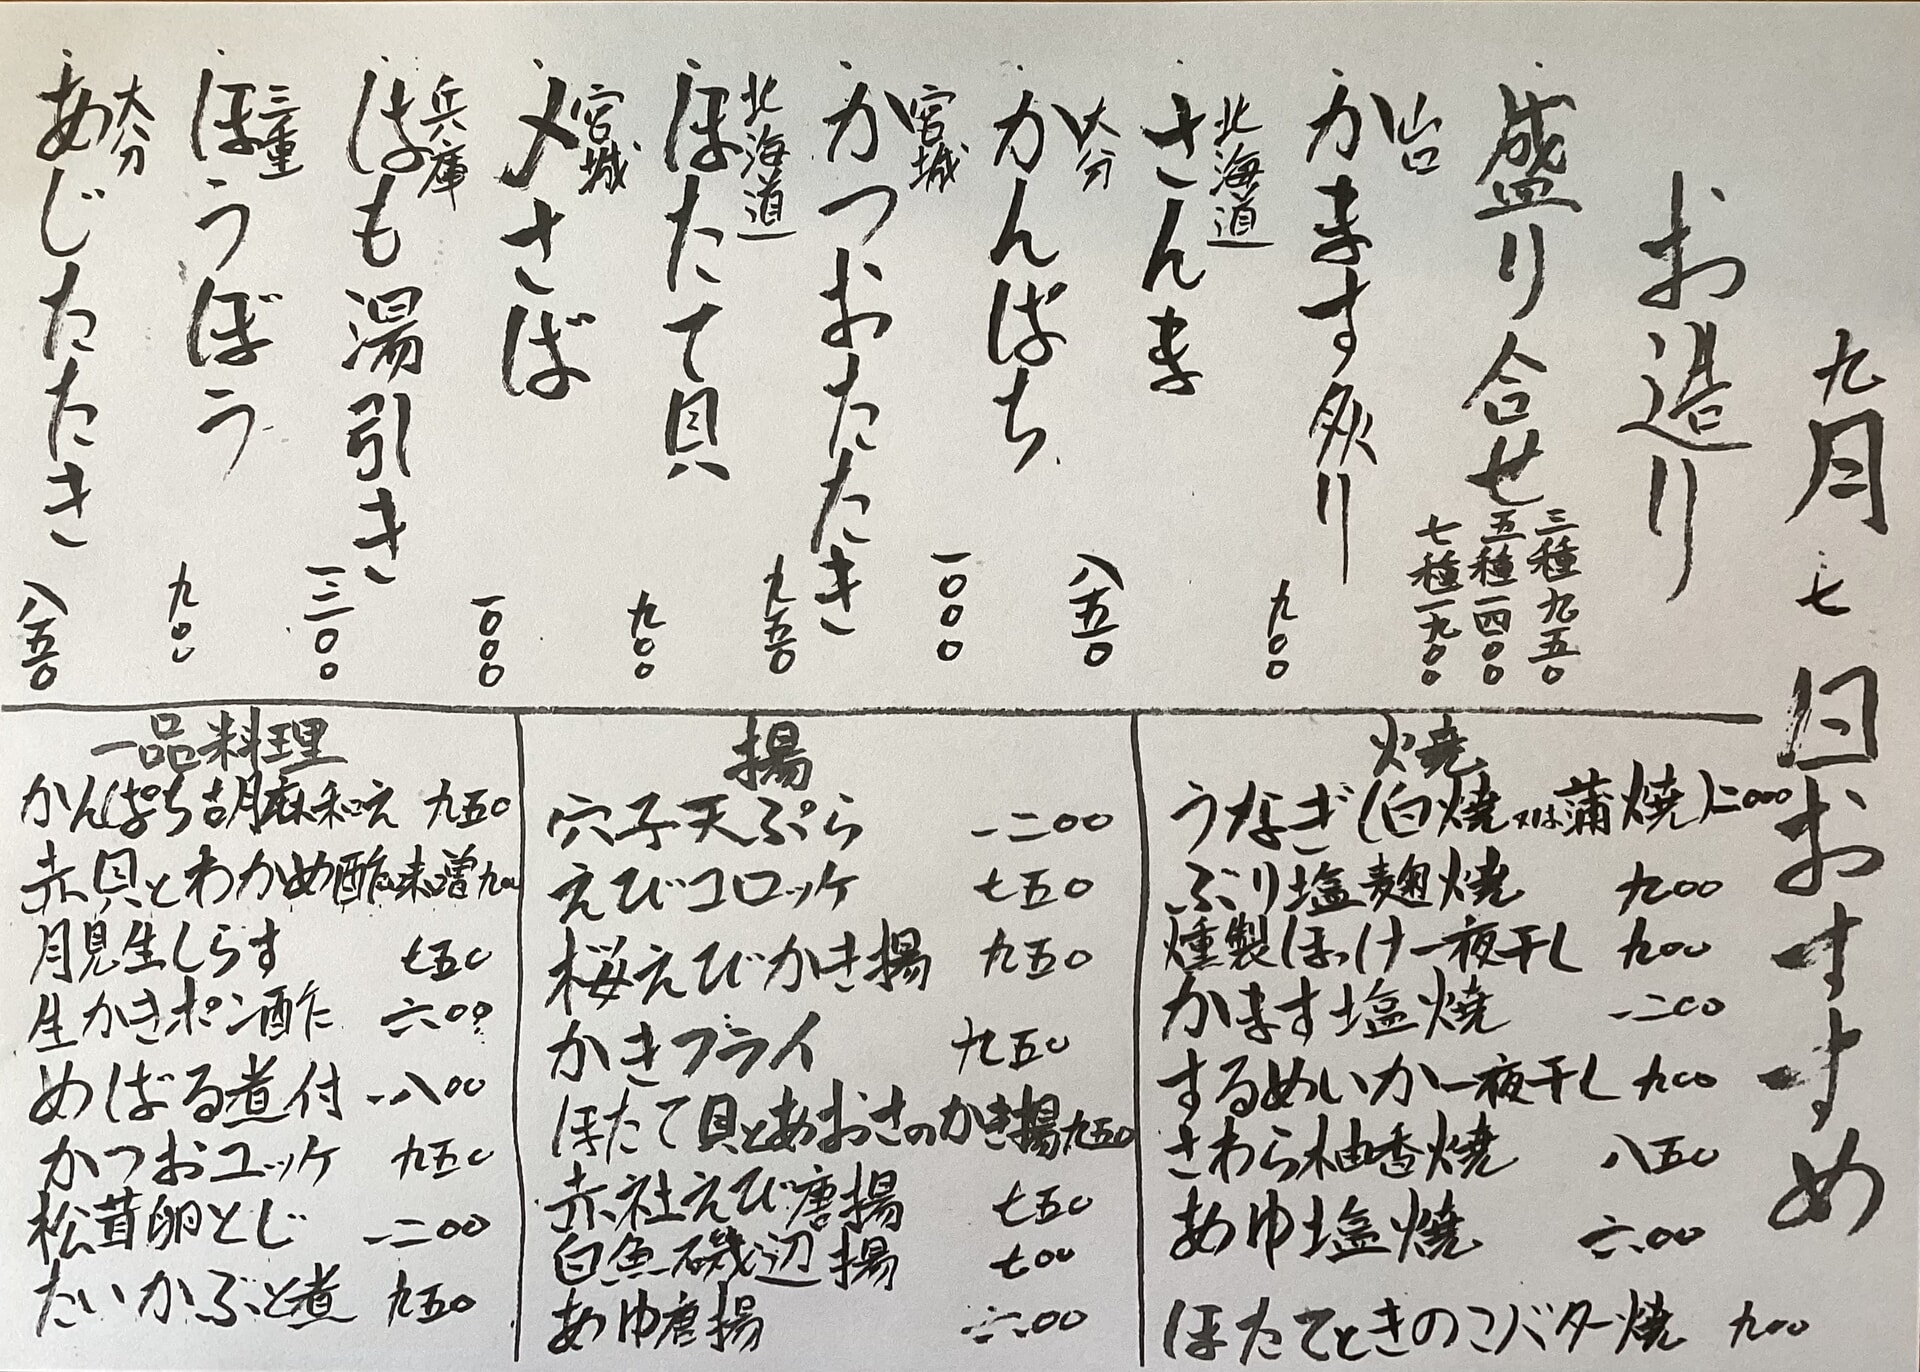 九月七日おすすめ
お造り
盛り合せ
三種九五〇
五種一四〇〇
七種一九〇〇
山口
かます炙り 九〇〇
北海道
さんま 八五〇
大分
かんぱち 一〇〇〇
宮城
かつおたたき 九五〇
北海道
ほたて貝 九〇〇
宮城
〆さば 一〇〇〇
兵庫
はも湯引き 一三〇〇
三重
ほうぼう 九〇〇
大分
あじたたき 八五〇
焼
うなぎ(白焼又は蒲焼)二〇〇〇
ぶり塩麹焼 九〇〇
燻製ほっけ一夜干し 九〇〇
かます塩焼 一二〇〇
するめいか一夜干し 九〇〇
さわら柚香焼 八五〇
あゆ塩焼 六〇〇
ほたてときのこバター焼 九〇〇
揚
穴子天ぷら 一二〇〇
えびコロッケ 七五〇
桜えびかき揚 九五〇
かきフライ 九五〇
ほたて貝とあおさのかき揚九五〇
赤社えび唐揚 七五〇
白魚磯辺揚 七〇〇
あゆ唐揚 六〇〇
一品料理
かんぱち胡麻和え 九五〇
赤貝とわかめ酢味噌九〇〇
月見生しらす 七五〇
生かきポン酢 六〇〇
めばる煮付 一八〇〇
かつおユッケ 九五〇
松茸卵とじ 一二〇〇
たいかぶと煮 九五〇